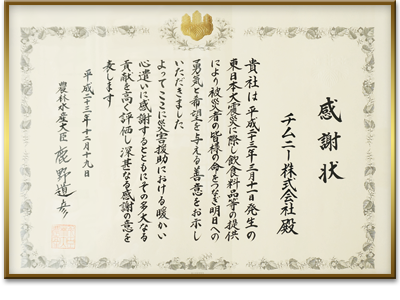 感謝状
チムニー株式会社殿
貴社は平成二十三年三月十一日発生の
東日本大震災に際し飲食料品等の提供
により被災者の皆様の命をつなぎ明日への
勇気と希望を与える善意をお示し
いただきました
よってここに災害援助における暖かい
心遣いに感謝するとともにその多大なる
貢献を高く評価し深甚なる感謝の意を
表します
平成二十三年十二月十九日
農林水産大臣 鹿野道彦